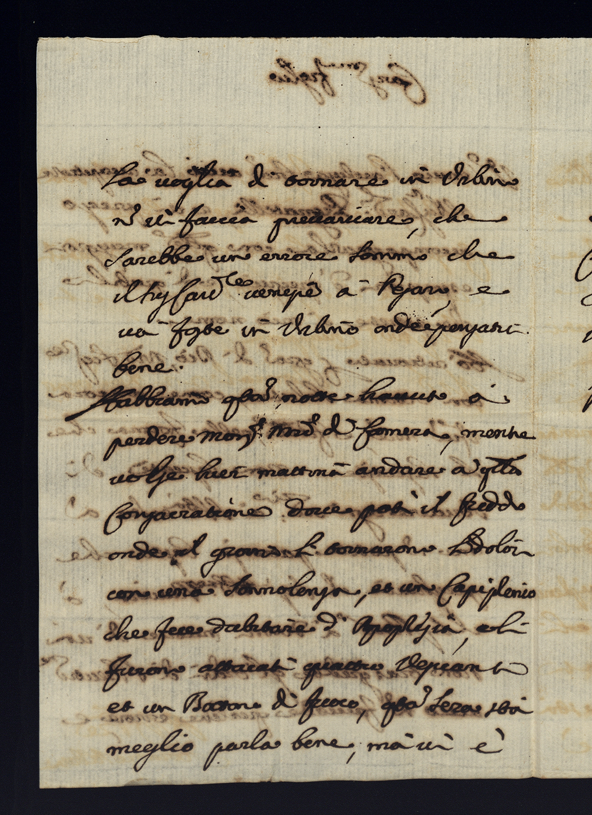 La voglia di tornare in Urbino
n. vi faccia prevaricare, che
sarebbe un errore sommo che
il Sig. Card.le venisse à Pesaro, e
voi foste in Urbino onde pensati
bene.
Habbiamo q.ta notte havuto à
perdere Mons.r di Camera, mentre
volse hieri mattina andare à q.lla
Consacratione dove patì il freddo
onde il giorno li tornarono li dolori
con una sonnolenza, et un Capiplenio
che fece dubitare d'Apoplesia, e li
furon attacati quattro Vesicanti
et un Botone di fuoco, q.ta sera stà
meglio parla bene, mà vi è